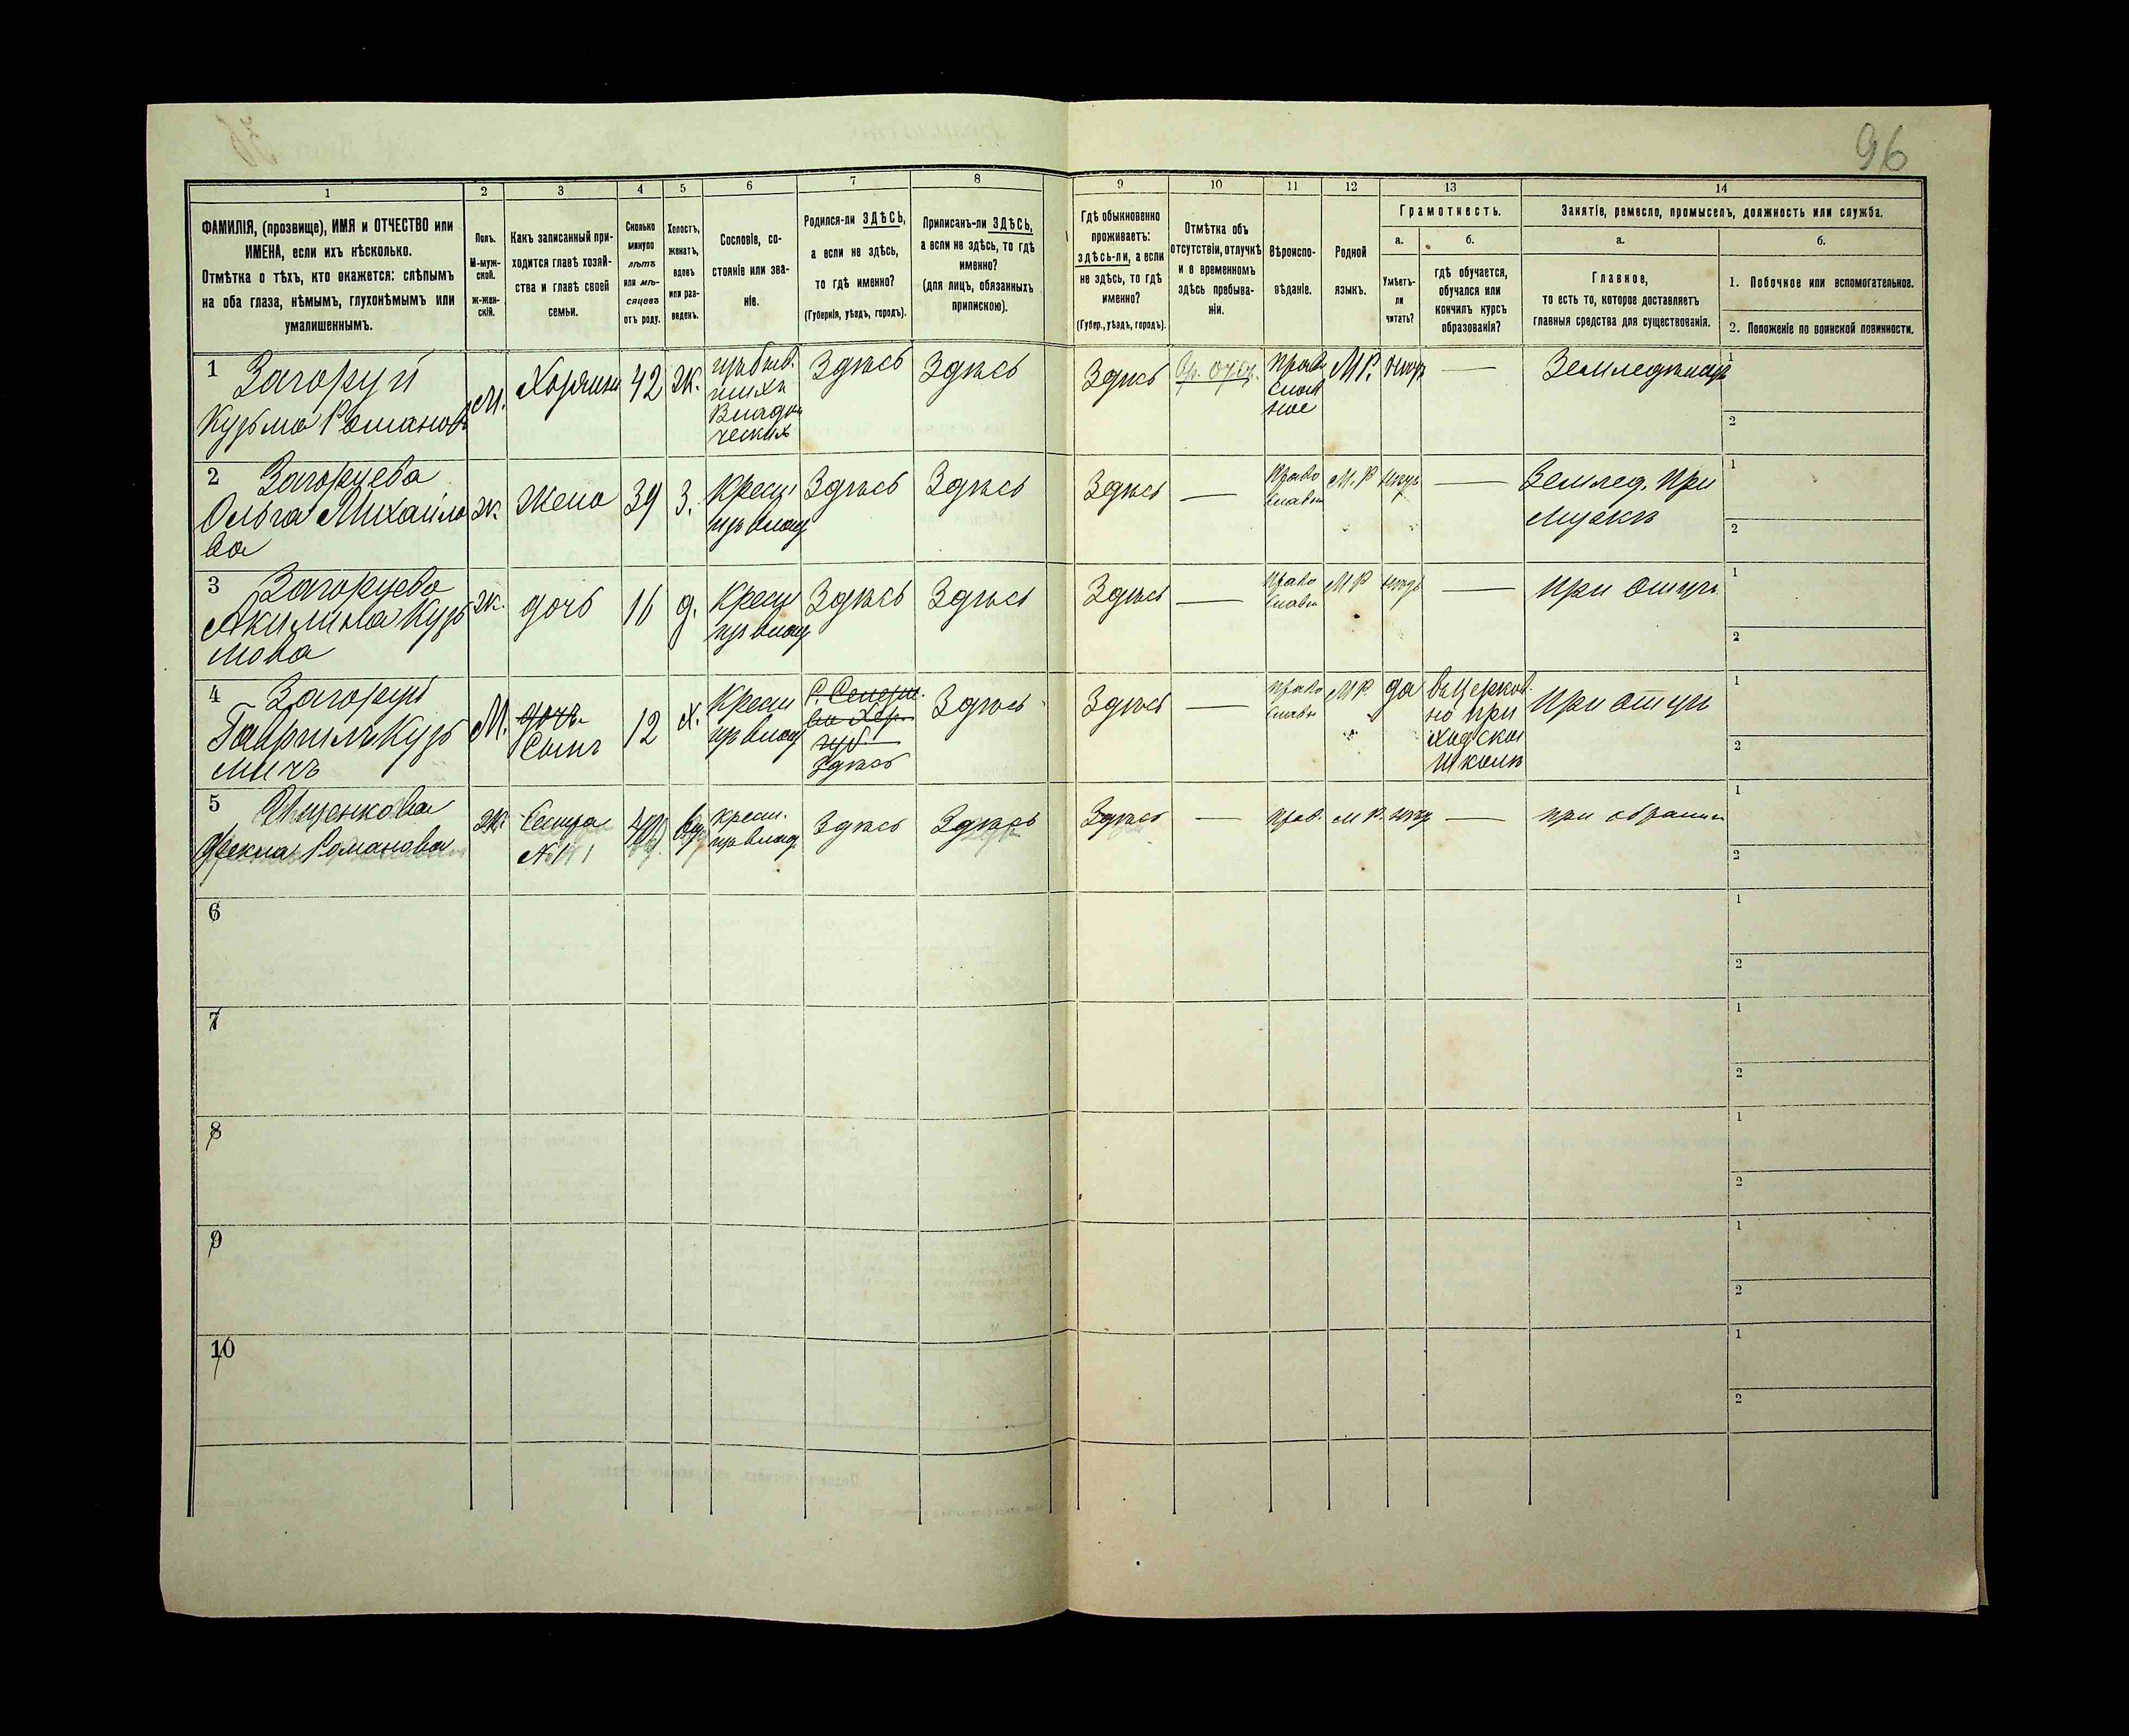 96
1 2 3 4 5 6 7 8 9 10 11 12 13 14
ФАМИЛІЯ, (прозвище), ИМЯ и ОТЧЕСТВО или
ИМЕНА, если ихъ нѣсколько.
Отмѣтка о тѣхъ, кто окажется: слѣпымъ
на оба глаза, нѣмымъ, глухонѣмымъ или
умалишеннымъ.
Полъ.
М-муж-
ской.
Ж-жен-
скій.
Какъ записанный при-
ходится главѣ хозяй-
ства и главѣ своей
семьи.
Сколько
минуло
лѣтъ
или мѣ-
сяцевъ
отъ роду.
Холостъ,
женатъ,
вдовъ
или раз-
веденъ.
Сословіе, со-
стояніе или зва-
ніе.
Родился-ли ЗДѢСЬ,
а если не здѣсь,
то гдѣ именно?
(Губернія, уѣздъ, городъ).
Приписанъ-ли ЗДѢСЬ,
а если не здѣсь, то гдѣ
именно?
(для лицъ, обязанныхъ
припискою).
Гдѣ обыкновенно
проживаетъ:
здѣсь-ли, а если
не здѣсь, то гдѣ
именно?
(Губер., уѣздъ, городъ).
Отмѣтка объ
отсутствіи, отлучкѣ
и о временномъ
здѣсь пребыва-
ніи.
Вѣроиспо-
вѣданіе.
Родной
языкъ.
Грамотность.
а.
Умѣетъ-
ли
читать?
б.
гдѣ обучается,
обучался или
кончилъ курсъ
образованія?
Занятіе, ремесло, промыселъ, должность или служба.
а.
Главное,
то есть то, которое доставляетъ
главныя средства для существованія.
б.
1. Побочное или вспомогательное.
2. Положеніе по воинской повинности.
1 Загоруй
Кузьма Романовъ
М.
Хозяинъ
42
Ж.
изъ быв.
шихъ
Владѣль
ческихъ
Здѣсь
Здѣсь
Здѣсь
Право
слав
ное
М Р.
Земледѣлецъ
1
2
2 Загоруева
Ольга Михайло
ва
Ж.
Жена
39
З.
Крест
изъ влад
Здѣсь
Здѣсь
Здѣсь
—
Право
славн
М. Р
—
Землед. При
Мужѣ
1
2
3 Загоруева
Акилина Кузь
мова
Ж.
дочь
16
д.
Крест
изъ влад
Здѣсь
Здѣсь
Здѣсь
—
Право
славн
М Р
—
при отцѣ
1
2
4 Загоруй
Гаврiилъ Кузь
мичъ
М.
дочь
Сынъ
12
Х.
Крест
изъ влад
Здѣсь
Здѣсь
Здѣсь
—
Право
славн
М Р
да
въ Церков
но при
ходской
школѣ
при отцѣ
1
2
5 Ищенкова
Фекла Романова
Ж.
Сестра
№ 1
Вд.
крест.
изъ влад.
Здѣсь
Здѣсь
Здѣсь
—
прав.
М Р.
—
при
1
2
6
1
2
7
1
2
8
1
2
9
1
2
10
1
2